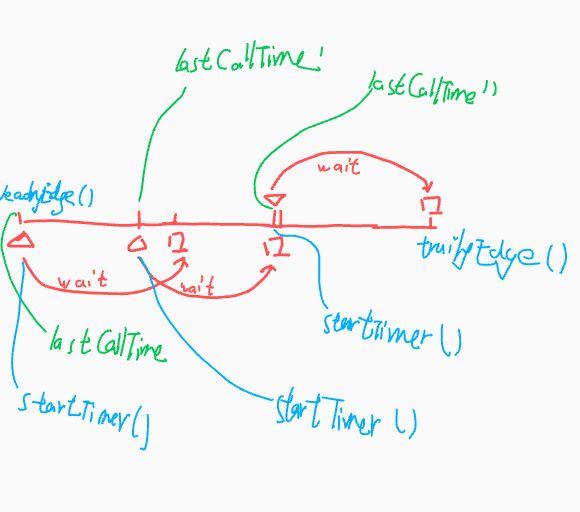 lastCallTime'
lastCallTime''
wait
leadingEdge()
trailingEdge()
wait
wait
startTimer()
lastCallTime
startTimer()
startTimer()